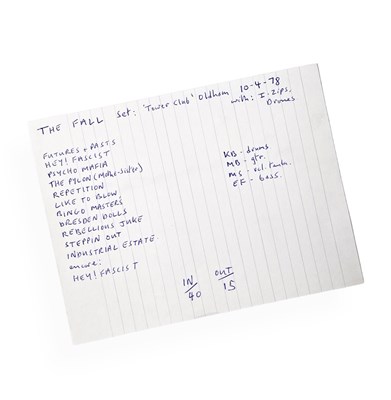 THE FALL Set: 'Tower Club' Oldham 10-4-78
with: I-Zips,
Drones
FUTURES + PASTS
HEY! FASCIST
PSYCHO MAFIA
THE PYLON (Mother-Sister)
REPETITION
LIKE TO BLOW
BINGO MASTERS
DRESDEN DOLLS
REBELLIOUS JUKE
STEPPIN OUT
INDUSTRIAL ESTATE
encore:
HEY! FASCIST
KB - drums
MB - gtr.
MS - vcl.
EF - bass.
IN OUT
40 15